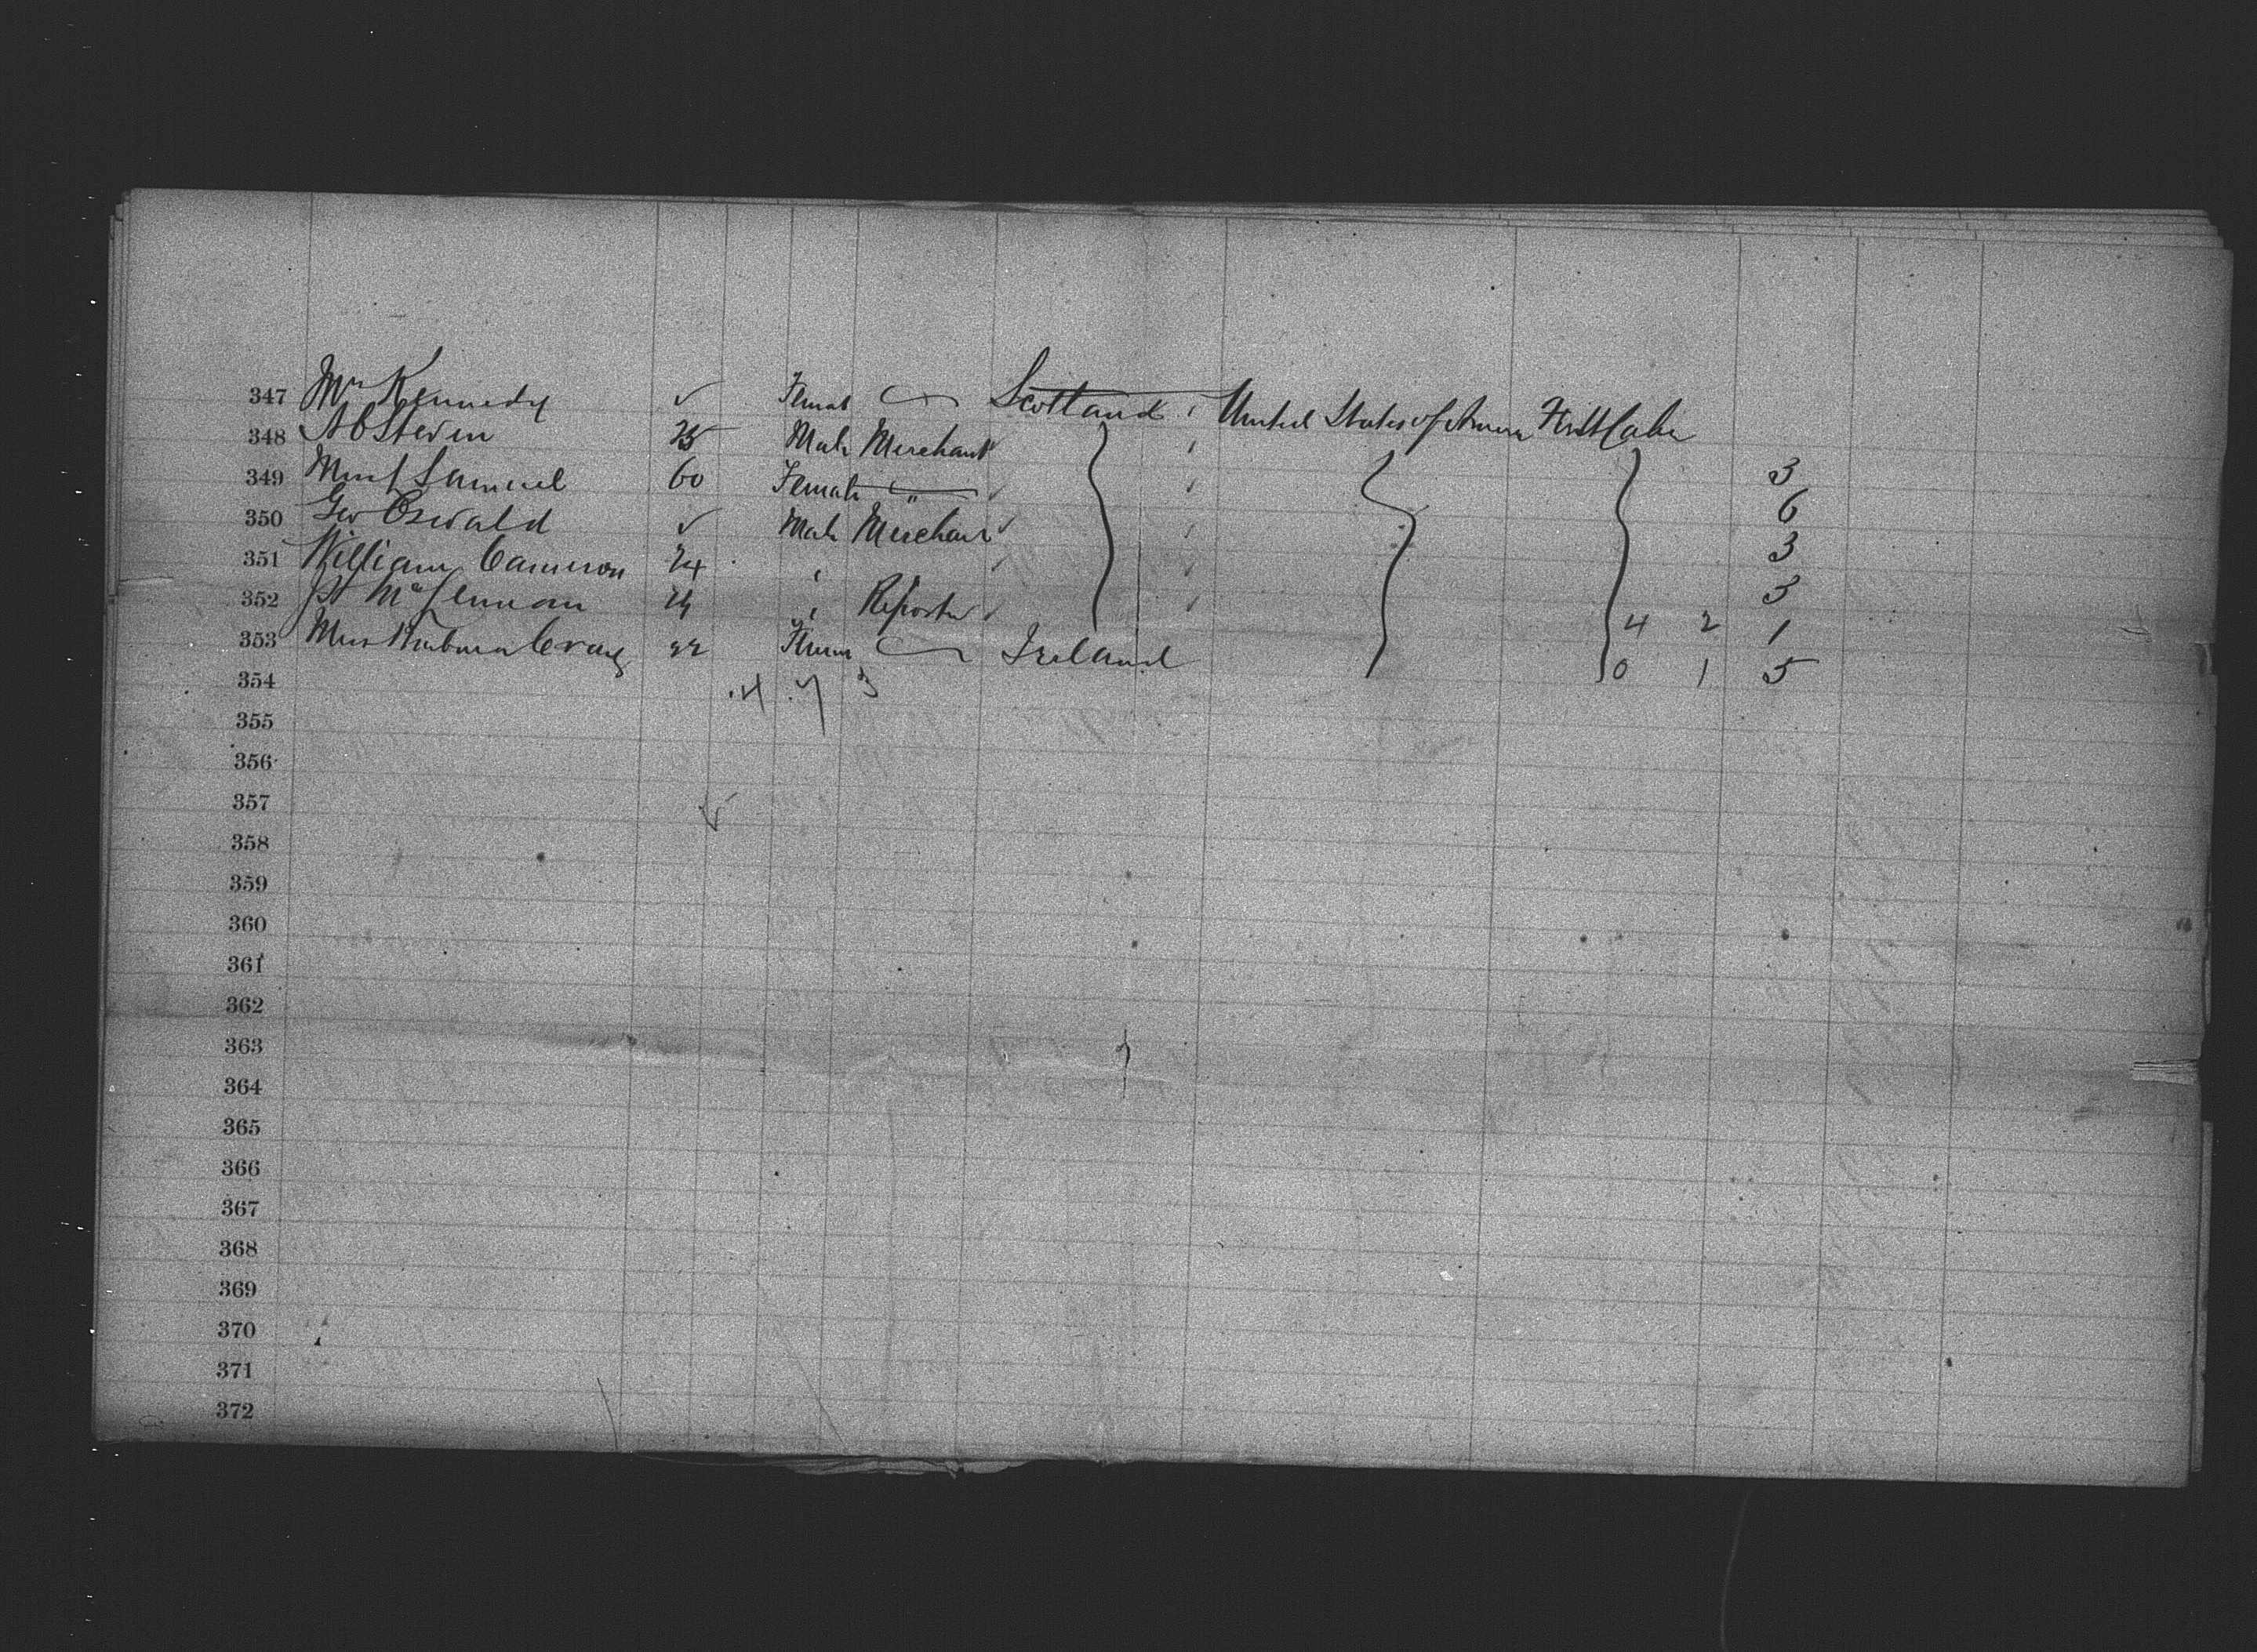 347 Mrs Kennedy ✓ Femal Scotland United States of America First Cabin
348 A B Steven 25 Male Merchant
349 Samuel 60 Female " 3
350 Geo Oswald ✓ Male Merchant 6
351 William Cameron 24 3
352 Mc 24 Reporter 3
4 2 1
353 Miss Craig 22 Ireland
0 1 5
354 4 7 3
355
356
357
358
359
360
361
362
363
364
365
366
367
368
369
370
371
372